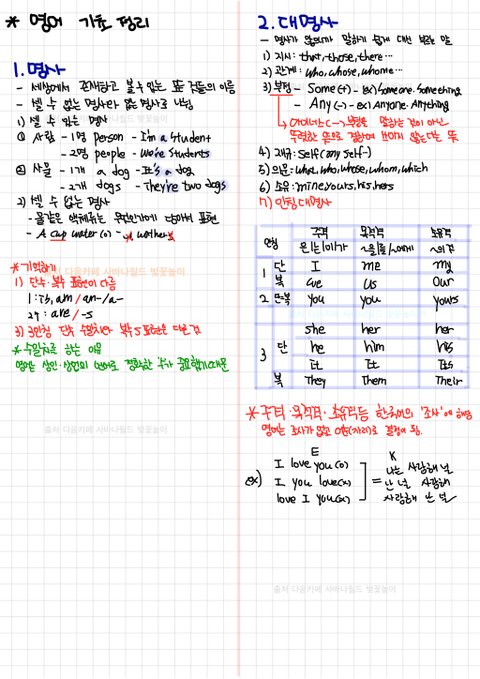 * 영어 기초 정리
1. 명사
- 세상에서 존재하고 볼 수 있는 모든 것들의 이름
- 셀 수 있는 명사와 없는 명사로 나뉨
1) 셀 수 있는 명사
① 사람 - 1명 person - I'm a student
- 2명 people - We're students
② 사물 - 1개 a dog - It's a dog
- 2개 dogs - They're two dogs
2) 셀 수 없는 명사
- 물같은 액체류는 담아서 표현
- A cup water (o) -
* 기억하기
1) 단수·복수 표현이 다름
1 : is, am / an-/a-
2↑ : are / -s
3) 3인칭 단수 복수 s 표현은 다른 것
* 수일치로 하는 이유
영어는 상인·상업의 언어로 정확한 수가 중요했기 때문
출처 다음카페 사바나월드 벚꽃놀이
2. 대명사
- 명사가 말하기 쉽게 대신 부르는 말
1) 지시 : that, those, there ...
2) 관계 : who, whose, whome ...
3) 부정 - Some (+) - ex) Someone. Something
- Any (-) - ex) Anyone. Anything
↳ 여기서 (-) → 부정을 말하는 것이 아닌
뚜렷한 뜻으로 정하여 쓰이지 않는다는 뜻
4) 재귀 : self (any self-)
5) 의문 : what, who, whose, whom, which
6) 소유 : mine, yours, his, hers
7) 인칭대명사
인칭 주격 은/는/이/가 목적격 ~을/를/~에게 소유격 ~의 것
1 단 I me my
복 we us our
2 단·복 you you yours
she her her
3 단 he him his
It It Its
복 They Them Their
* 주격·목적격·소유격 등 한국어의 '조사'에 해당
영어는 조사가 없고 어순(자리)로 결정이 됨.
E K
ex) I love you (o) 나는 사랑해 널
I you love (x) = 난 널 사랑해
love I you (x) 사랑해 난 널
출처 다음카페 사바나월드 벚꽃놀이